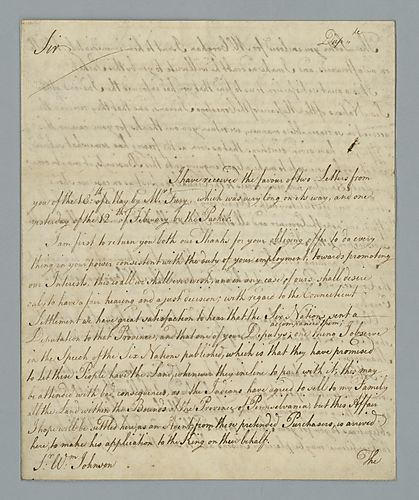 Dup.te
Sir
I have received the favour of two Letters from
you of the 18.th of May by Mr. Tusy, which was very long on its way, and one
yesterday of the 12.th of February by the Packet.
I am first to return you both our Thanks for your obliging offer to do every
thing in your power consistent with the duty of your employment, towards promoting
our Interest; this is all we shall ever wish, and in every case of ours shall desire
only to have a fair hearing and a just decision; with regard to the Connecticut
Settlement we have great satisfaction to hear that the Six Nations sent a
Deputation to that Province, and that one of your Deputys accompanied them; one thing I observe
in the Speech of the Six Nations published, which is that they have promised
to let these People have the Land whenever they incline to part with it; this may
be attended with bad consequences, as the Indians have agreed to sell to my Family
all the Land within the Bounds of the Province of Pennsylvania; but this Affair
I hope will be settled here, as an Agent from these pretended Purchasers, is arrived
here to make his application to the King on their behalf.
Sr. Wm. Johnson
The